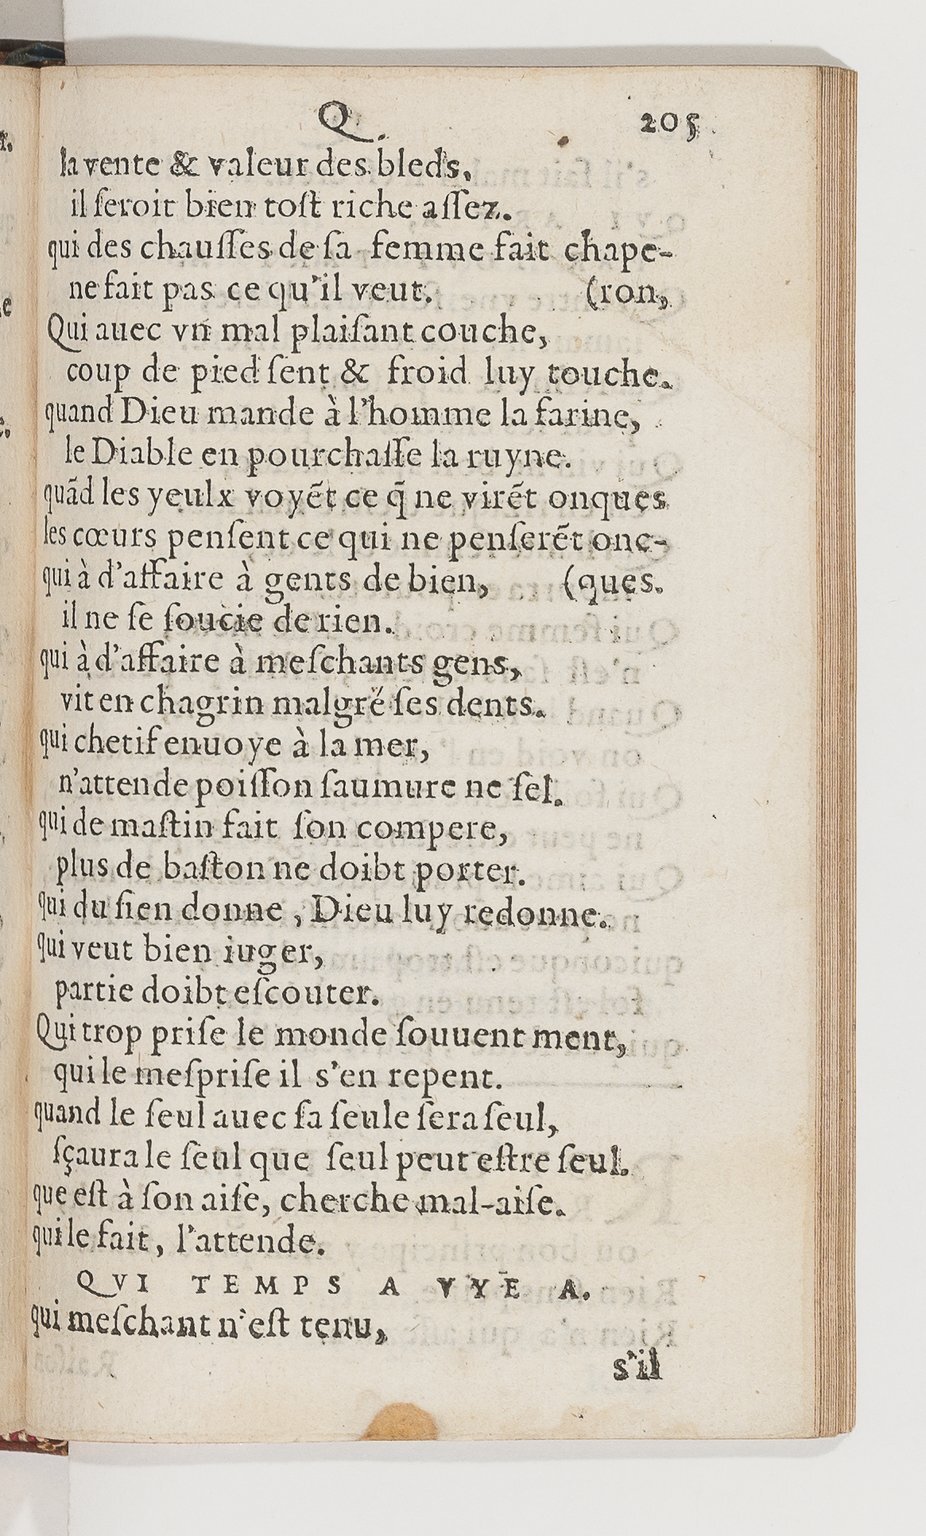 Q. 205
la vente & valeur des bleds,
il ſeroit bien toſt riche aſſez.
qui des chauſſes de ſa femme fait chape-
ne fait pas ce qu'il veut. (ron,
Qui auec vn mal plaiſant couche,
coup de pied ſent & froid luy touche.
quand Dieu mande à l'homme la farine,
le Diable en pourchaſſe la ruyne.
quãd les yeulx voyẽt ce q̃ ne virẽt onques
les cœurs penſent ce qui ne penſerẽt onc-
qui à d'affaire à gents de bien, (ques.
il ne ſe ſoucie de rien.
qui à d'affaire à meſchants gens,
vit en chagrin malgré ſes dents.
qui chetif enuoye à la mer,
n'attende poiſſon ſaumure ne ſel.
qui de maſtin fait ſon compere,
plus de baſton ne doibt porter.
qui du ſien donne, Dieu luy redonne.
qui veut bien iuger,
partie doibt eſcouter.
Qui trop priſe le monde ſouuent ment,
qui le meſpriſe il s'en repent.
quand le ſeul auec ſa ſeule ſera ſeul,
ſçaura le ſeul que ſeul peut eſtre ſeul.
que eſt à ſon aiſe, cherche mal-aiſe.
qui le fait, l'attende.
QVI TEMPS A VYE A.
qui meſchant n'eſt tenu,
s'il